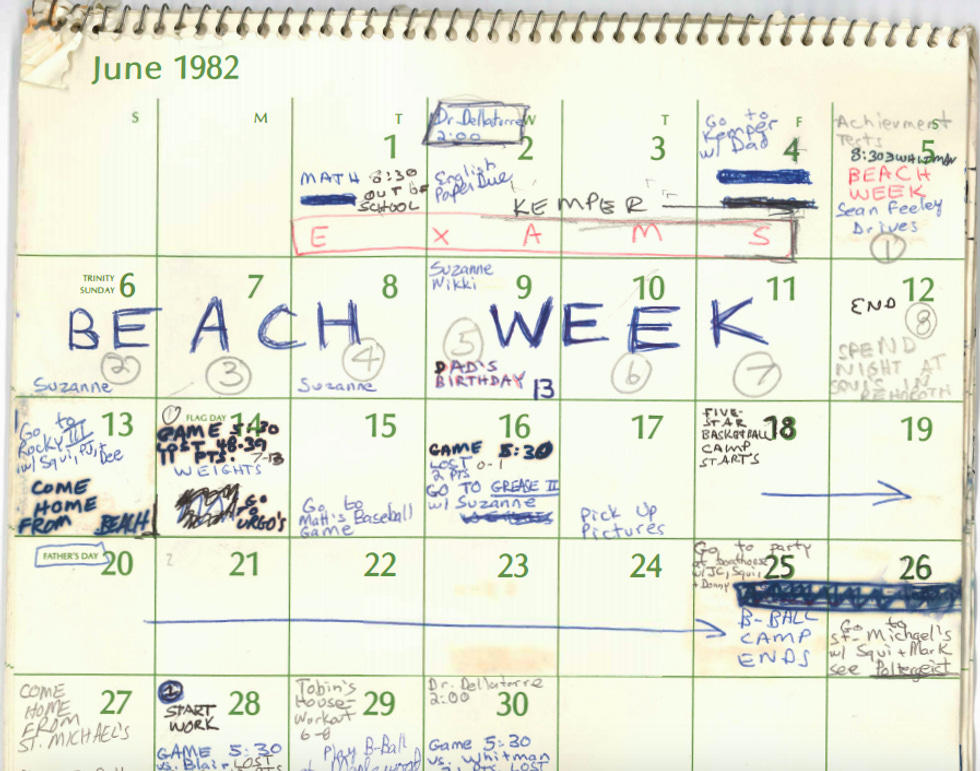 June 1982
S M T W T F S
1
MATH 8:30
OUT OF
SCHOOL
Dr. Dellatorre
2:00
2
English
Paper Due
3
KEMPER
E X A M S
Go to
Kemper
w/ Dad
4
Achievement
Tests
5
8:30
BEACH
WEEK
Sean Feeley
Drives
1
TRINITY
SUNDAY 6
2
Suzanne
7
3
8
4
Suzanne
Suzanne
Nikki
9
5
DAD'S
BIRTHDAY
10
6
11
7
BEACH WEEK
12
END
8
SPEND
NIGHT AT
SQUI'S IN
REHOBOTH
13
Go to
Rocky III
w/ Squi, PJ,
Dee
COME
HOME
FROM BEACH
1
FLAG DAY 14
GAME 5:30
LOST 48-39
11 PTS. 7-13
WEIGHTS
GO
TO
URGO'S
15
Go to
Matt's Baseball
Game
16
GAME 5:30
LOST 0-1
2 PTS
GO TO GREASE II
w/ Suzanne
17
Pick Up
Pictures
FIVE-
STAR
BASKETBALL 18
CAMP
STARTS
19
FATHER'S DAY 20
2
21
22
23
24
Go to party
at boathouse
w/ JC, Squi,
+ Donny
25
B-BALL
CAMP
ENDS
26
Go to
St. Michael's
w/ Squi + Mark
see Poltergeist
COME
HOME
FROM
ST. MICHAEL'S
27
1
28
START
WORK
GAME 5:30
vs. Blair LOST
Tobin's
House-
Workout
6-8
29
Play B-Ball
Dr. Dellatorre
2:00
30
Game 5:30
vs. Whitman
PTS LOST